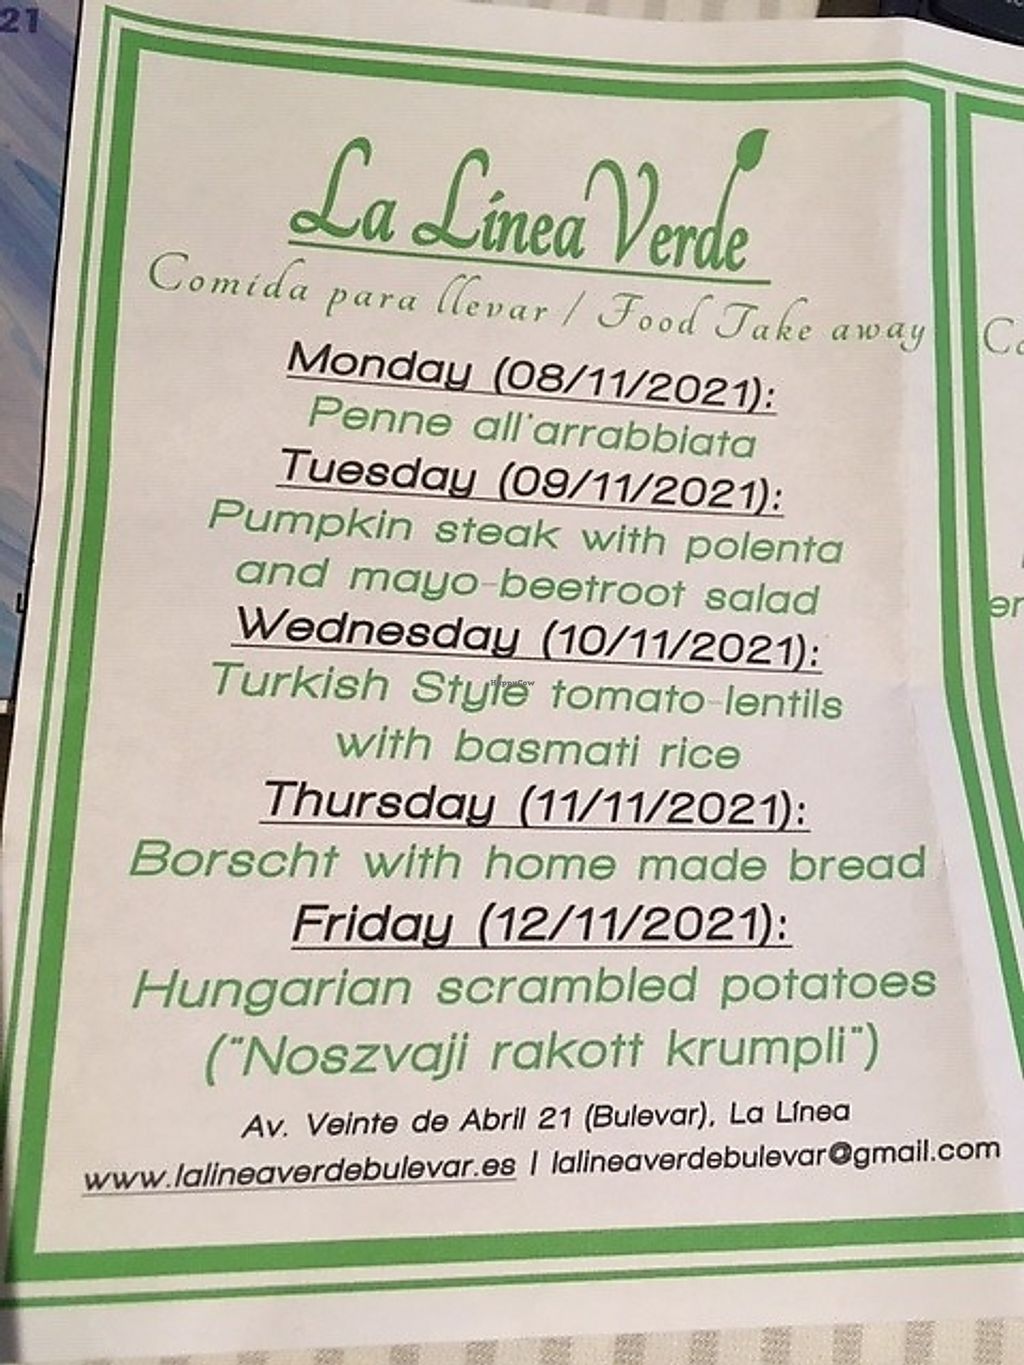 21
La Línea Verde
Comida para llevar / Food Take away
Monday (08/11/2021):
Penne all'arrabbiata
Tuesday (09/11/2021):
Pumpkin steak with polenta
and mayo-beetroot salad
Wednesday (10/11/2021):
Turkish Style tomato-lentils
HappyCow
with basmati rice
Thursday (11/11/2021):
Borscht with home made bread
Friday (12/11/2021):
Hungarian scrambled potatoes
("Noszvaji rakott krumpli")
Av. Veinte de Abril 21 (Bulevar), La Línea
www.lalineaverdebulevar.es | lalineaverdebulevar@gmail.com